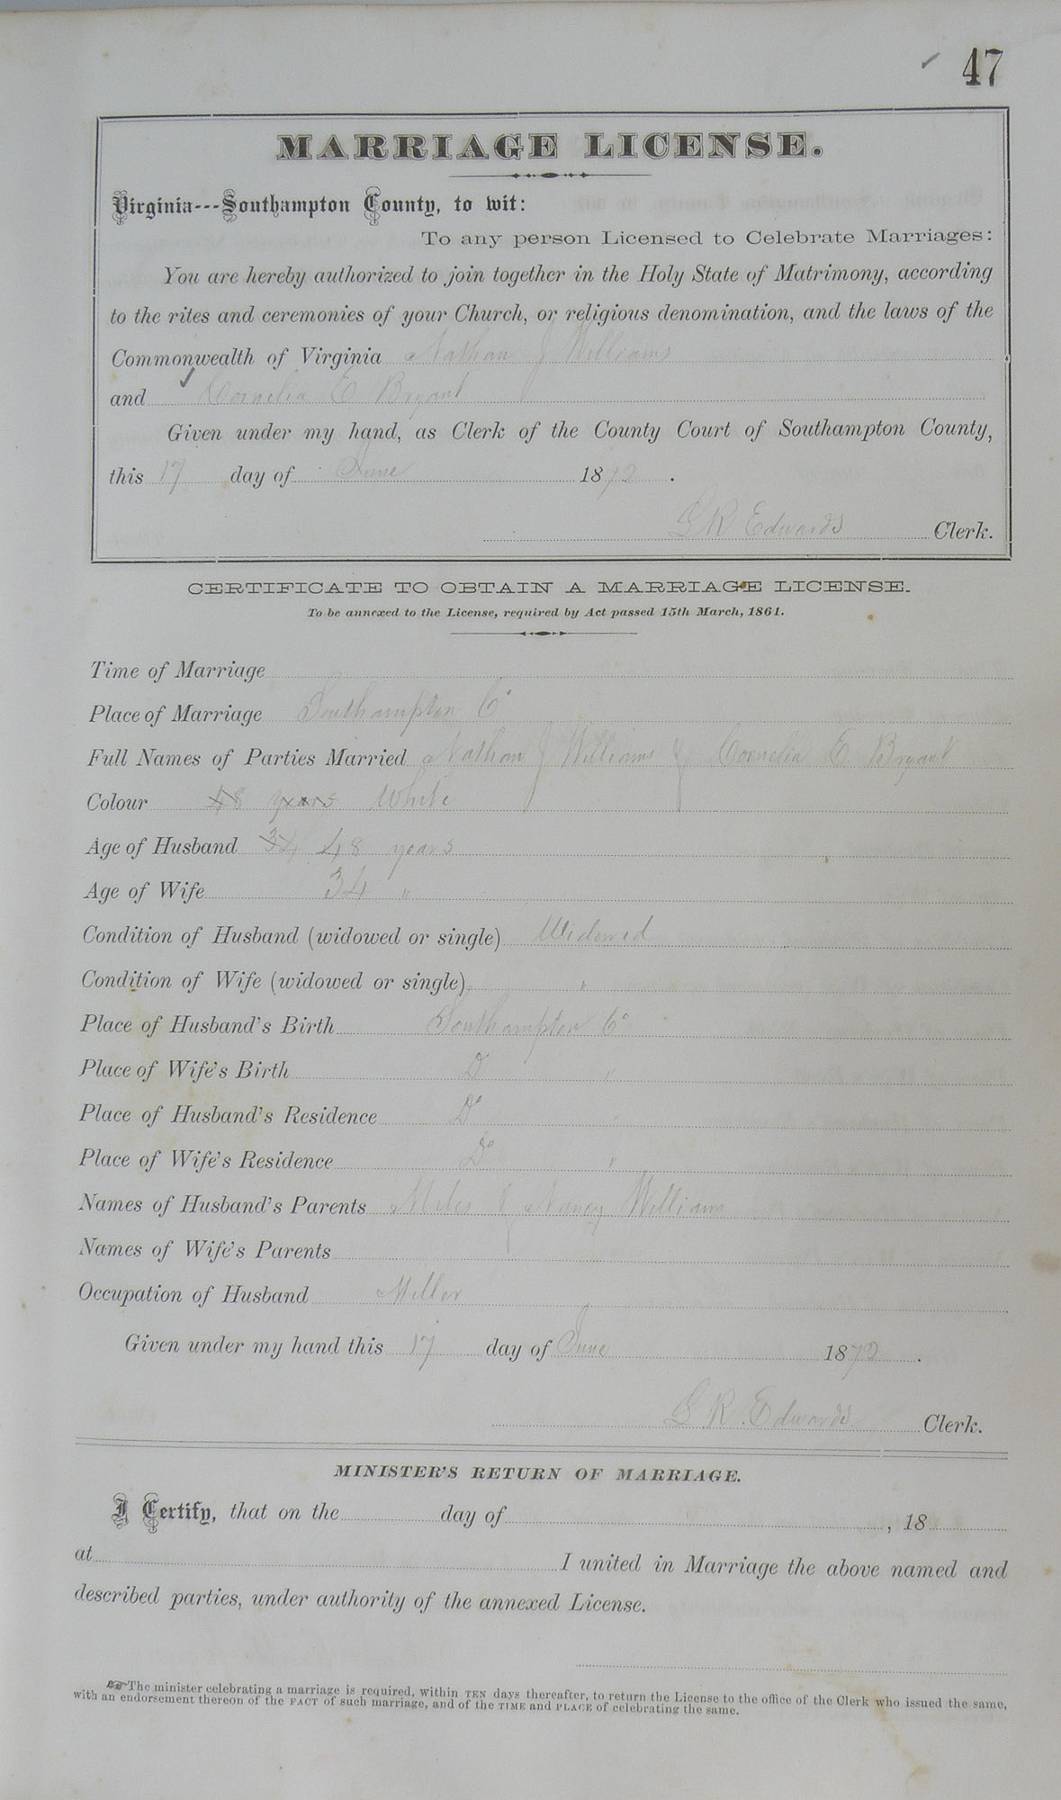 47
MARRIAGE LICENSE.
Virginia---Southampton County, to wit:
To any person Licensed to Celebrate Marriages:
You are hereby authorized to join together in the Holy State of Matrimony, according
to the rites and ceremonies of your Church, or religious denomination, and the laws of the
Commonwealth of Virginia Nathan J Williams
and Cornelia E Bryant
Given under my hand, as Clerk of the County Court of Southampton County,
this 17 day of June 1872.
L R Edwards Clerk.
CERTIFICATE TO OBTAIN A MARRIAGE LICENSE.
To be annexed to the License, required by Act passed 15th March, 1861.
Time of Marriage
Place of Marriage Southampton Co
Full Names of Parties Married Nathan J Williams & Cornelia E Bryant
Colour 48 years White
Age of Husband 34 48 years
Age of Wife 34 "
Condition of Husband (widowed or single) Widowed
Condition of Wife (widowed or single) "
Place of Husband's Birth Southampton Co
Place of Wife's Birth Do "
Place of Husband's Residence Do
Place of Wife's Residence Do "
Names of Husband's Parents Miles & Nancy Williams
Names of Wife's Parents
Occupation of Husband Miller
Given under my hand this 17 day of June 1872.
L R. Edwards Clerk.
MINISTER'S RETURN OF MARRIAGE.
I Certify, that on the day of , 18
at I united in Marriage the above named and
described parties, under authority of the annexed License.
☞The minister celebrating a marriage is required, within TEN days thereafter, to return the License to the office of the Clerk who issued the same,
with an endorsement thereon of the FACT of such marriage, and of the TIME and PLACE of celebrating the same.